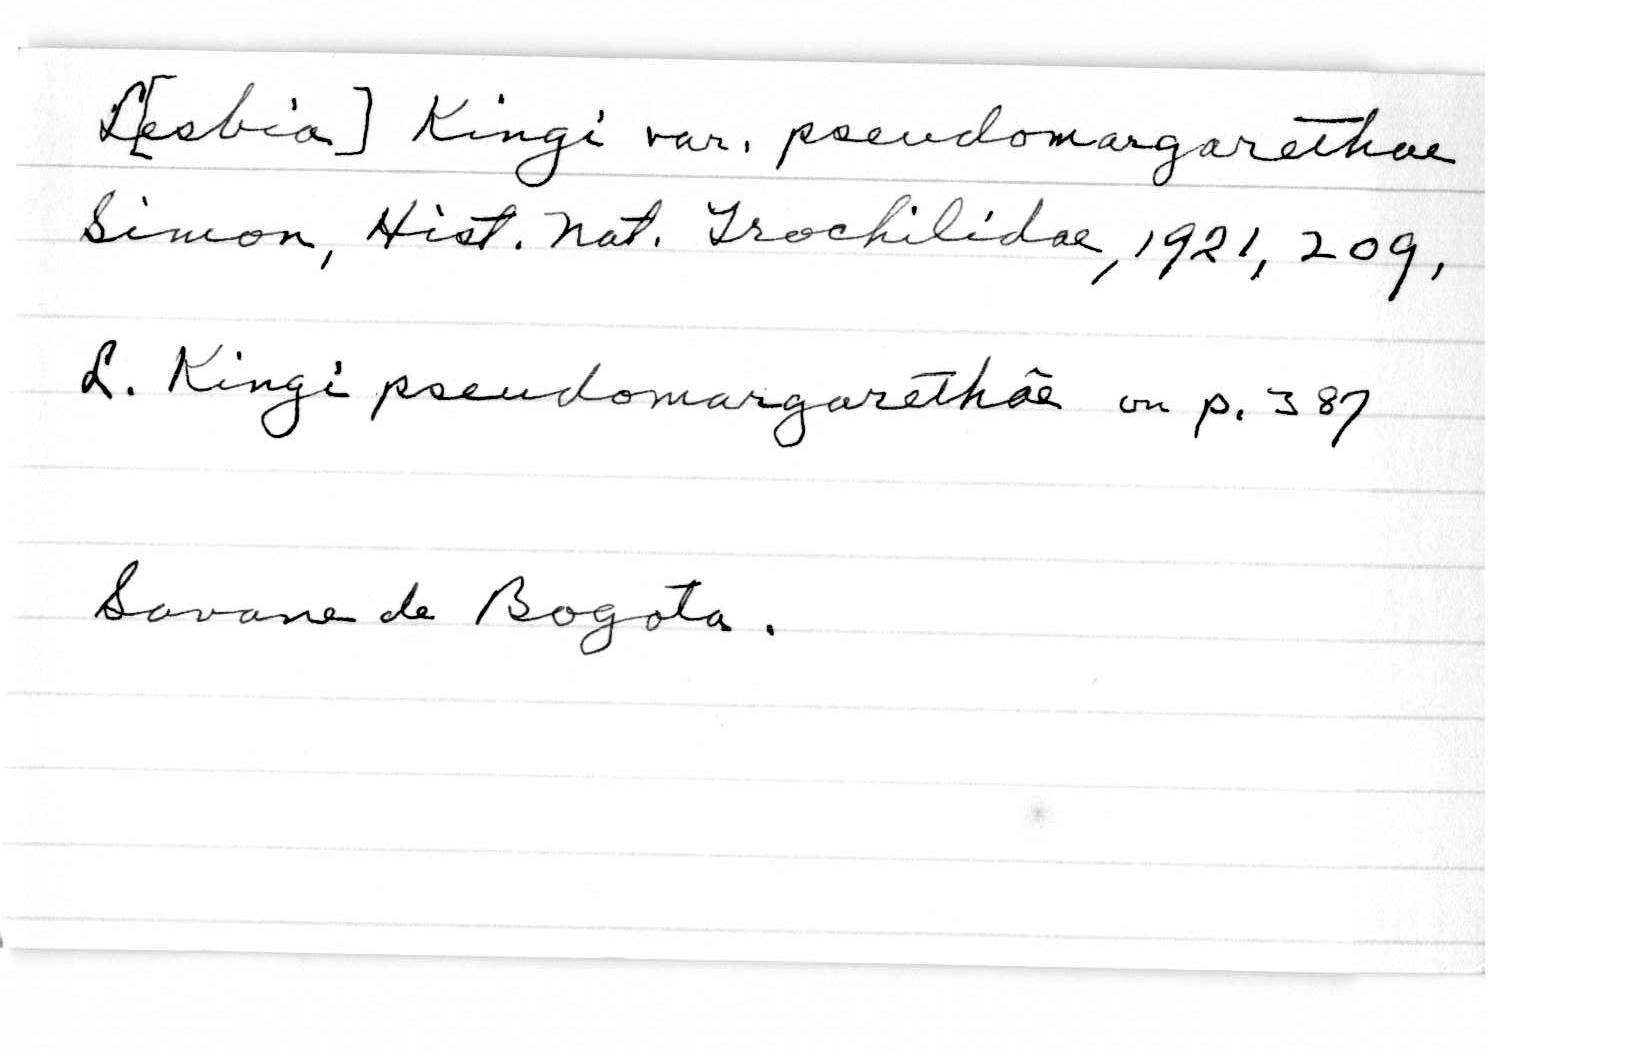 L[esbia] Kingi var. pseudomargarethae
Simon, Hist. Nat. Trochilidae, 1921, 209,
L. Kingi pseudomargarethãe on p. 387
Savane de Bogota.